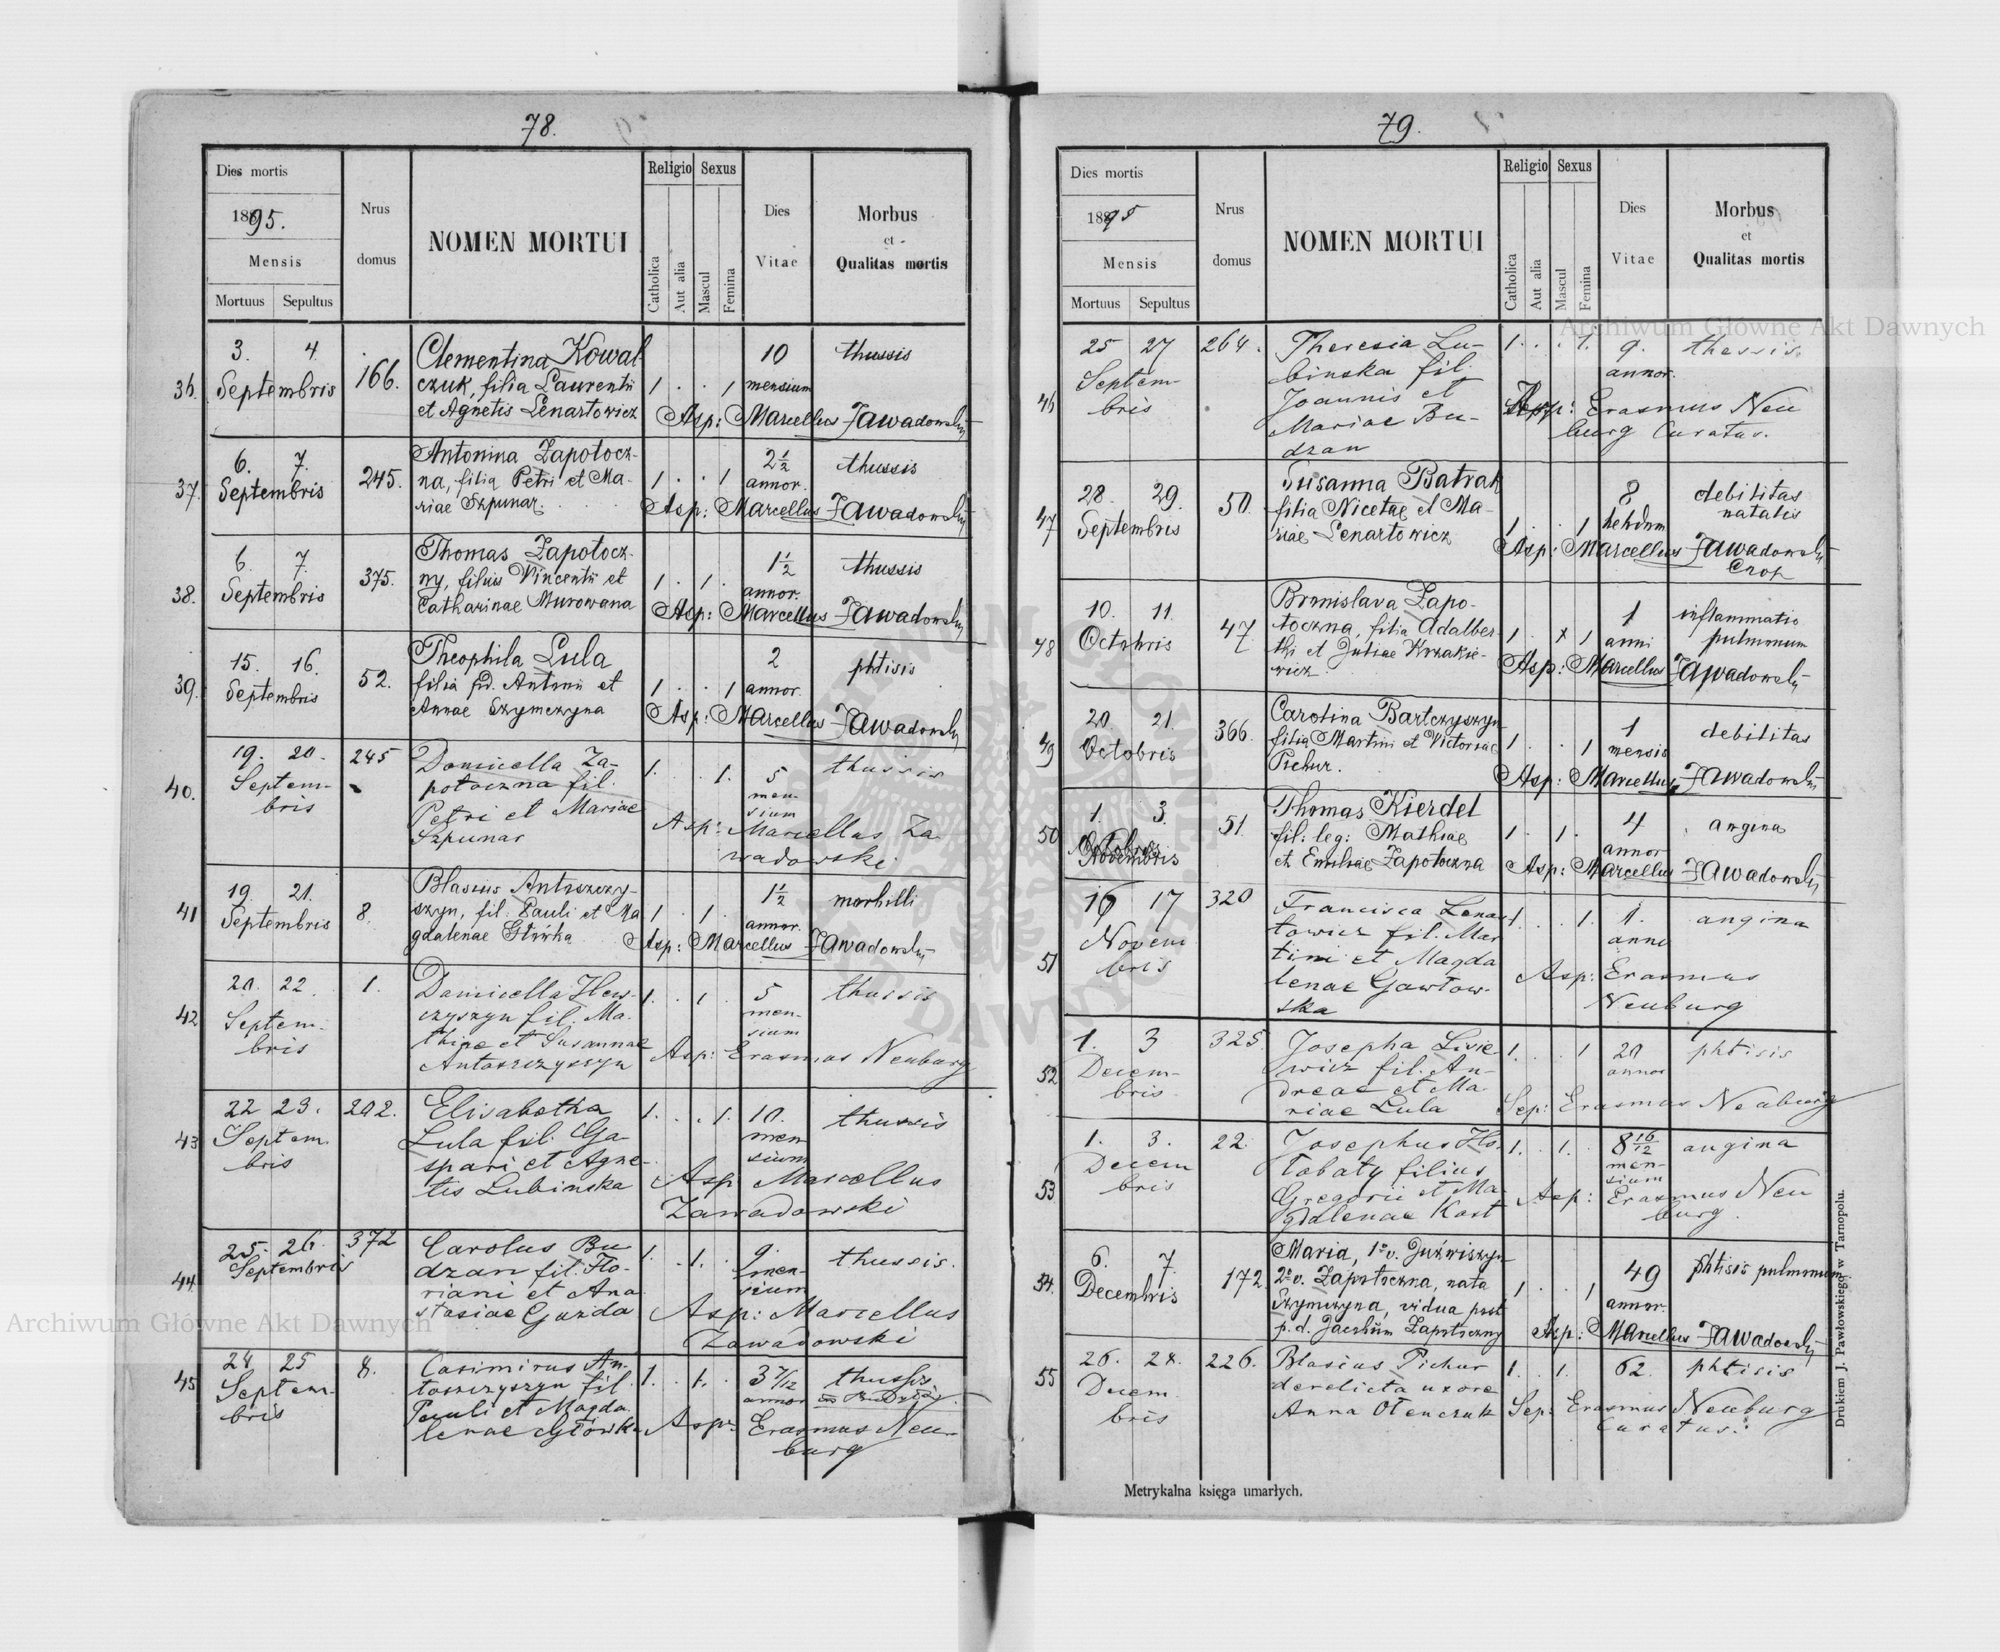 78.
Dies mortis
1895.
Mensis
Mortuus Sepultus
Nrus
domus
NOMEN MORTUI
Religio
Catholica
Aut alia
Sexus
Mascul
Femina
Dies
Vitae
Morbus
et
Qualitas mortis
36. 3. 4. Septembris 166.
Clementina Kowal
czuk, filia Laurentii
et Agnetis Lenartowicz
1 . . 1
10
mensium
thussis
Asp: Marcellus Zawadowski
37. 6. 7. Septembris 245.
Antonina Zapotocz-
na, filia Petri et Ma-
riae Szpunar.
1 . . 1
2 1/2
annor.
thussis
Asp: Marcellus Zawadowski
38. 6. 7. Septembris 375.
Thomas Zapotocz-
ny, filius Vincentii et
Catharinae Murowana
1 . 1 .
1 1/2
annor.
thussis
Asp: Marcellus Zawadowski
39. 15. 16. Septembris 52.
Theophila Lula
filia pd. Antonii et
Annae Szymczyna
1 . . 1
2
annor.
phtisis
Asp: Marcellus Zawadowski
40. 19. 20. Septem-
bris
245
Domicella Za-
potoczna fil.
Petri et Mariae
Szpunar
1. . . 1.
5
men-
sium
thussis
Asp: Marcellus Za
wadowski
41 19. 21. Septembris 8.
Blasius Antoszczy-
szyn, fil. Pauli et Ma
gdalenae Główka
1 . 1 .
1 1/2
annor.
morbilli
Asp: Marcellus Zawadowski
42 20. 22. Septem-
bris
1.
Domicella Hew-
czyszyn fil. Ma-
thiae et Susannae
Antoszczyszyn
1. . 1 .
5
men-
sium
thussis
Asp: Erasmus Neuburg
43 22 23. Septem
bris
202.
Elisabetha
Lula fil. Ga
spari et Agne-
tis Lubinska
1. . . 1.
10.
men
sium
thussis
Asp Marcellus
Zawadowski
44. 25. 26. Septembris 372
Carolus Bu
dzan fil. Flo-
riani et Ana
stasiae Gazda
1. . 1. .
9.
men-
sium
thussis.
Asp: Marcellus
Zawadowski
45 24 25 Septem-
bris
8.
Casimirus An-
toszczyszyn fil.
Pauli et Magda
lenae Główka
1. . 1. .
3 7/12
annor
thussis
Asp: Erasmus Neu-
burg
79.
Dies mortis
1895
Mensis
Mortuus Sepultus
Nrus
domus
NOMEN MORTUI
Religio
Catholica
Aut alia
Sexus
Mascul
Femina
Dies
Vitae
Morbus
et
Qualitas mortis
46 25 27 Septem-
bris
264.
Theresia Lu-
binska fil.
Joannis et
Mariae Bu-
dzan
1. . . 1.
9.
annor.
thussis.
Asp: Erasmus Neu
burg Curatus.
47 28. 29. Septembris 50.
Susanna Batrak
filia Nicetae et Ma-
riae Lenartowicz
1 . . 1
8
hebdom
debilitas
natalis
Asp: Marcellus Zawadowski
Exop
48 10. 11. Octobris 47
Bronislava Zapo-
toczna, filia Adalber
thi et Juliae Krzakie-
wicz
1 . x 1
1
anni
inflammatio
pulmonum
Asp: Marcellus Zawadowski
49 20. 21. Octobris 366.
Carolina Bartczyszyn
filia Martini et Victoriae
Pichur.
1 . . 1
1
mensis
debilitas
Asp: Marcellus Zawadowski
50 1. 3. Novembris 51.
Thomas Kierdel
fil: leg: Mathiae
et Emiliae Zapotoczna
1 . 1 .
4
annor
angina
Asp: Marcellus Zawadowski
51 16 17 Novem
bris
320
Francisca Lenar
towicz fil. Mar
tini et Magda
lenae Gawłow-
ska
1. . . 1.
1.
anni
angina
Asp: Erasmus
Neuburg
52 1. 3 Decem-
bris
325.
Josepha Lisie
wicz fil. An-
dreae et Ma-
riae Lula
1. . . 1
20
annor
phtisis
Sep: Erasmus Neuburg
53 1. 3. Decem
bris
22.
Josephus Ho-
łobaty filius
Gregorii et Ma-
gdalenae Kost
1. . 1. .
8 16/12
men-
sium
angina
Asp: Erasmus Neu
burg.
54. 6. 7. Decembris 172.
Maria, 1º v. Duźwiszyn
2º v. Zapotoczna, nata
Szymczyna, vidua post
p. d. Jacobum Zapotoczny
1 . . 1
49
annor.
phtisis pulmonum
Asp: Marcellus Zawadowski
55 26. 28. Decem
bris
226.
Blasius Pichur
derelicta uxore
Anna Olenczuk
1. . 1.
62.
phtisis
Sep: Erasmus Neuburg
Curatus.
Metrykalna księga umarłych.
Drukiem J. Pawłowskiego w Tarnopolu.
Archiwum Główne Akt Dawnych
Archiwum Główne Akt Dawnych
ARCHIWUM GŁÓWNE AKT DAWNYCH